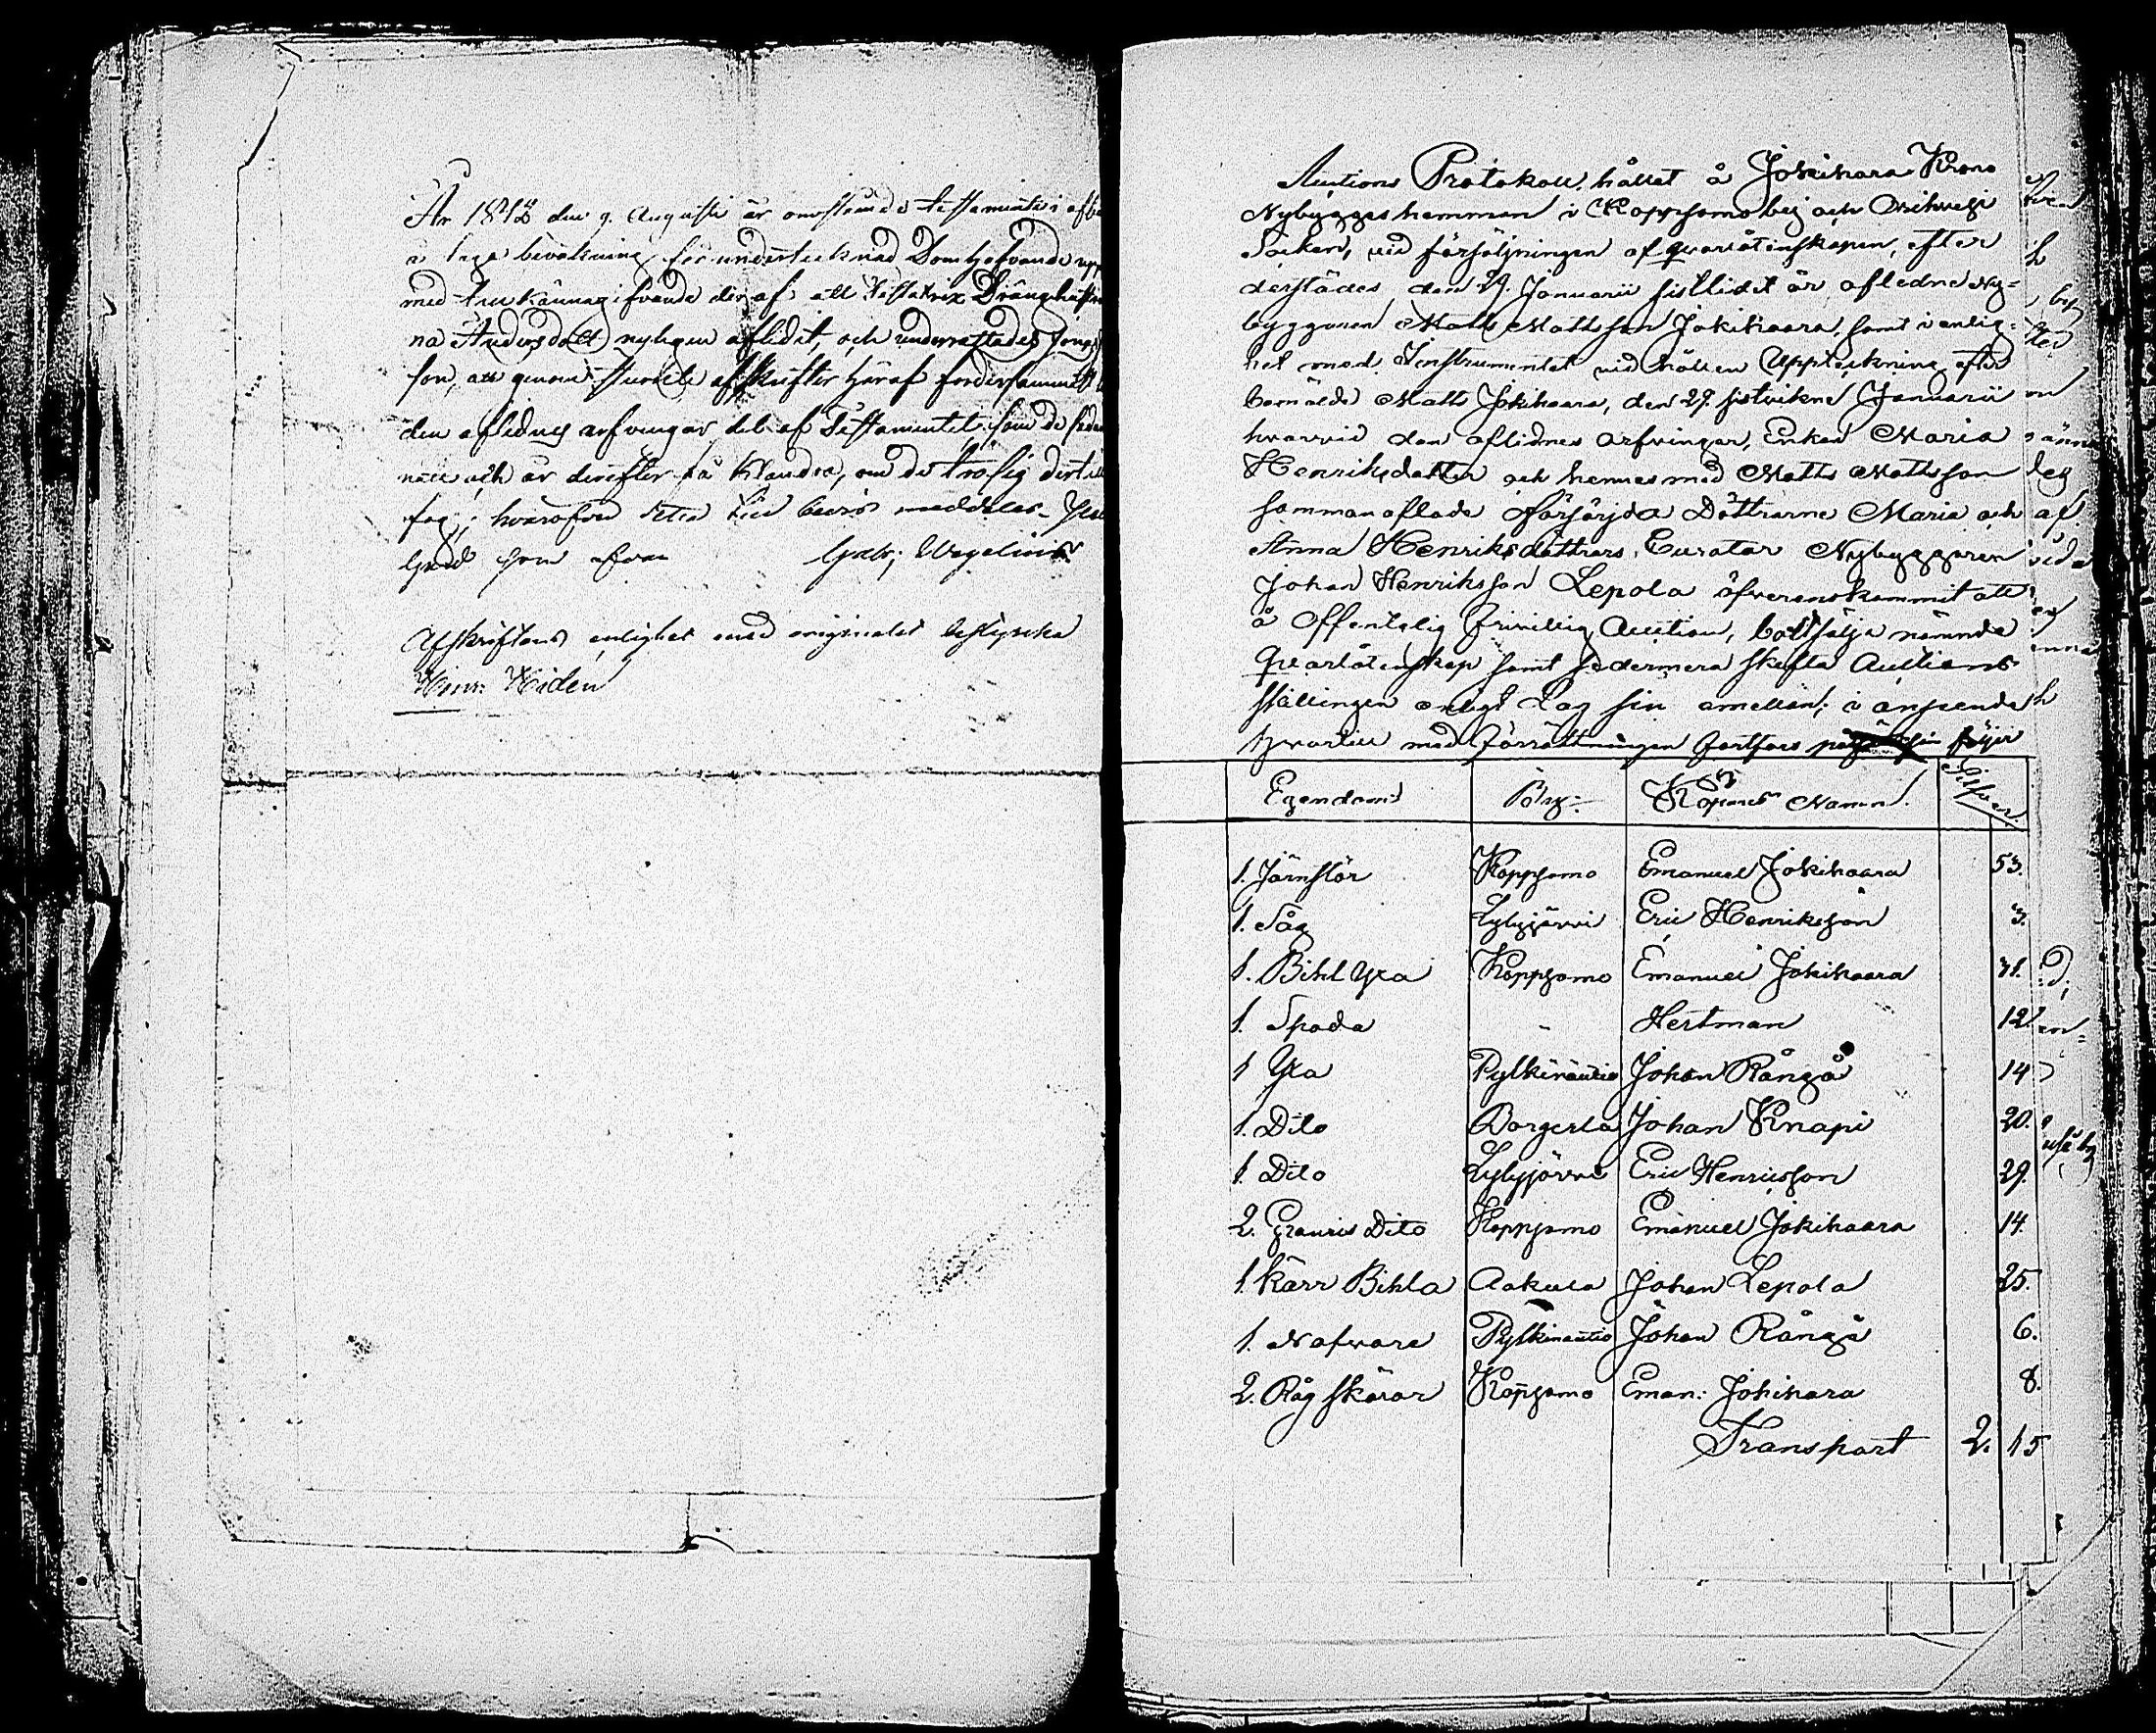 År 1842 den 9. Augusti är omstående testamente i afb
med tillkännagifvande deraf, att Testatrix Dränghustr
na Andersdotter nyligen aflidit, och
son, att genom afskrifter häraf fordersammast
den aflidnes arfvingar del af Testamentet, som de sedan
natt och år derefter få klandra, om de tro sig dertill
fog; hvarofvan detta till bevis meddelas. Ilm
Gård som ofvan Gabr: Wegelius
Afskriftens enlighet med originalet bestyrka
Henr: Hidén
Auctions Protokoll, hållet å Jokihaara Krono
Nybyggeshemman i Koppsamo bÿ och
Socken, vid försäljningen af qvarlåtenskapen, efter
derstädes den 29. Januarii sistlidet år aflidne Ny-
byggaren Matts Mattsson Jokihaara, samt i enlig-
het med Instrumentet vid hållen Uppteckning efter
bemälde Matts Jokihaara, den 29. sistvikne Januarii
hvarvid den aflidnes arfvingar, Enkan Maria
Henriksdotter och hennes med Matts Mattsson
sammanaflade oförsörjda Döttrarne Maria och
Anna Henriksdöttrars Curator Nybyggaren
Johan Henriksson Lepola öfverenskommit att
å Offentelig frivillig Auction, bortsälja nämnde
Qvarlåtenskap samt sedermera skifta Auctions
ställingen enligt Lag sin emellan; i anseende
hvartill med förrättningen fortfors som följer
Egendom Bÿ: Köpares Namn. Silfver
1. Järnstör Koppsamo Emanuel Jokihaara 53.
1. Såg Lylyjärvi Eric Henriksson 3.
1. Bihl Yxa Koppsamo Emanuel Jokihaara 31.
1. Spada " Hertman 12.
1 Yxa Pylkinautio Johan Rångå 14
1. Dito Borgerla Johan Knapi 20.
1. Dito Lylyjärvi Eric Henricsson 29.
2. Dito Koppsamo Emanuel Jokihaara 14.
1. Kärr Bihla Aakula Johan Lepola 25.
1. Nafvare Pylkinautio Johan Rångå 6.
2. Råg skäror Koppsamo Eman: Jokihaara 8.
Transport 2. 15